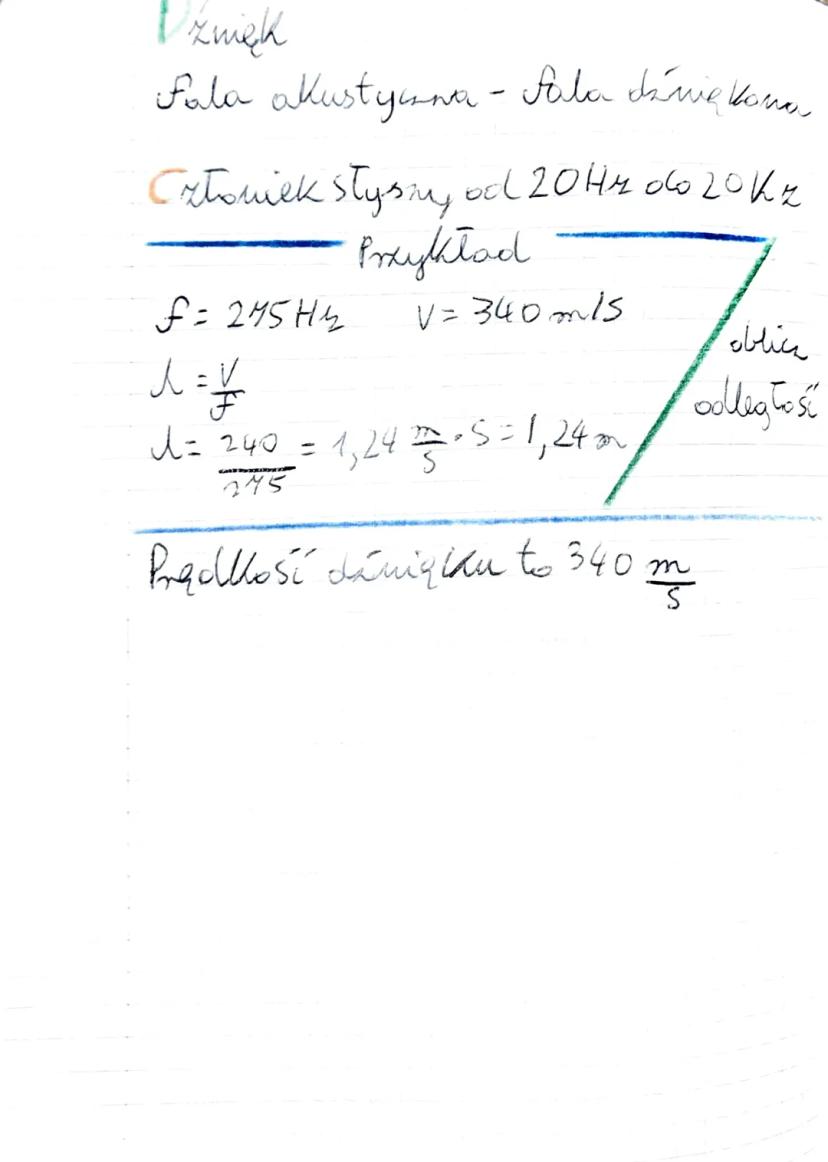 Dźwięk
Fala akustyczna - fala dźwiękowa
Człowiek słyszy od 20Hz do 20Kz
Przykład
f = 275Hz v = 340 m/s
λ = V/f
λ = 240/275 = 1,24 m/s · s = 1,24m
oblicz
odległość
Prędkość dźwięku to 340 m/s